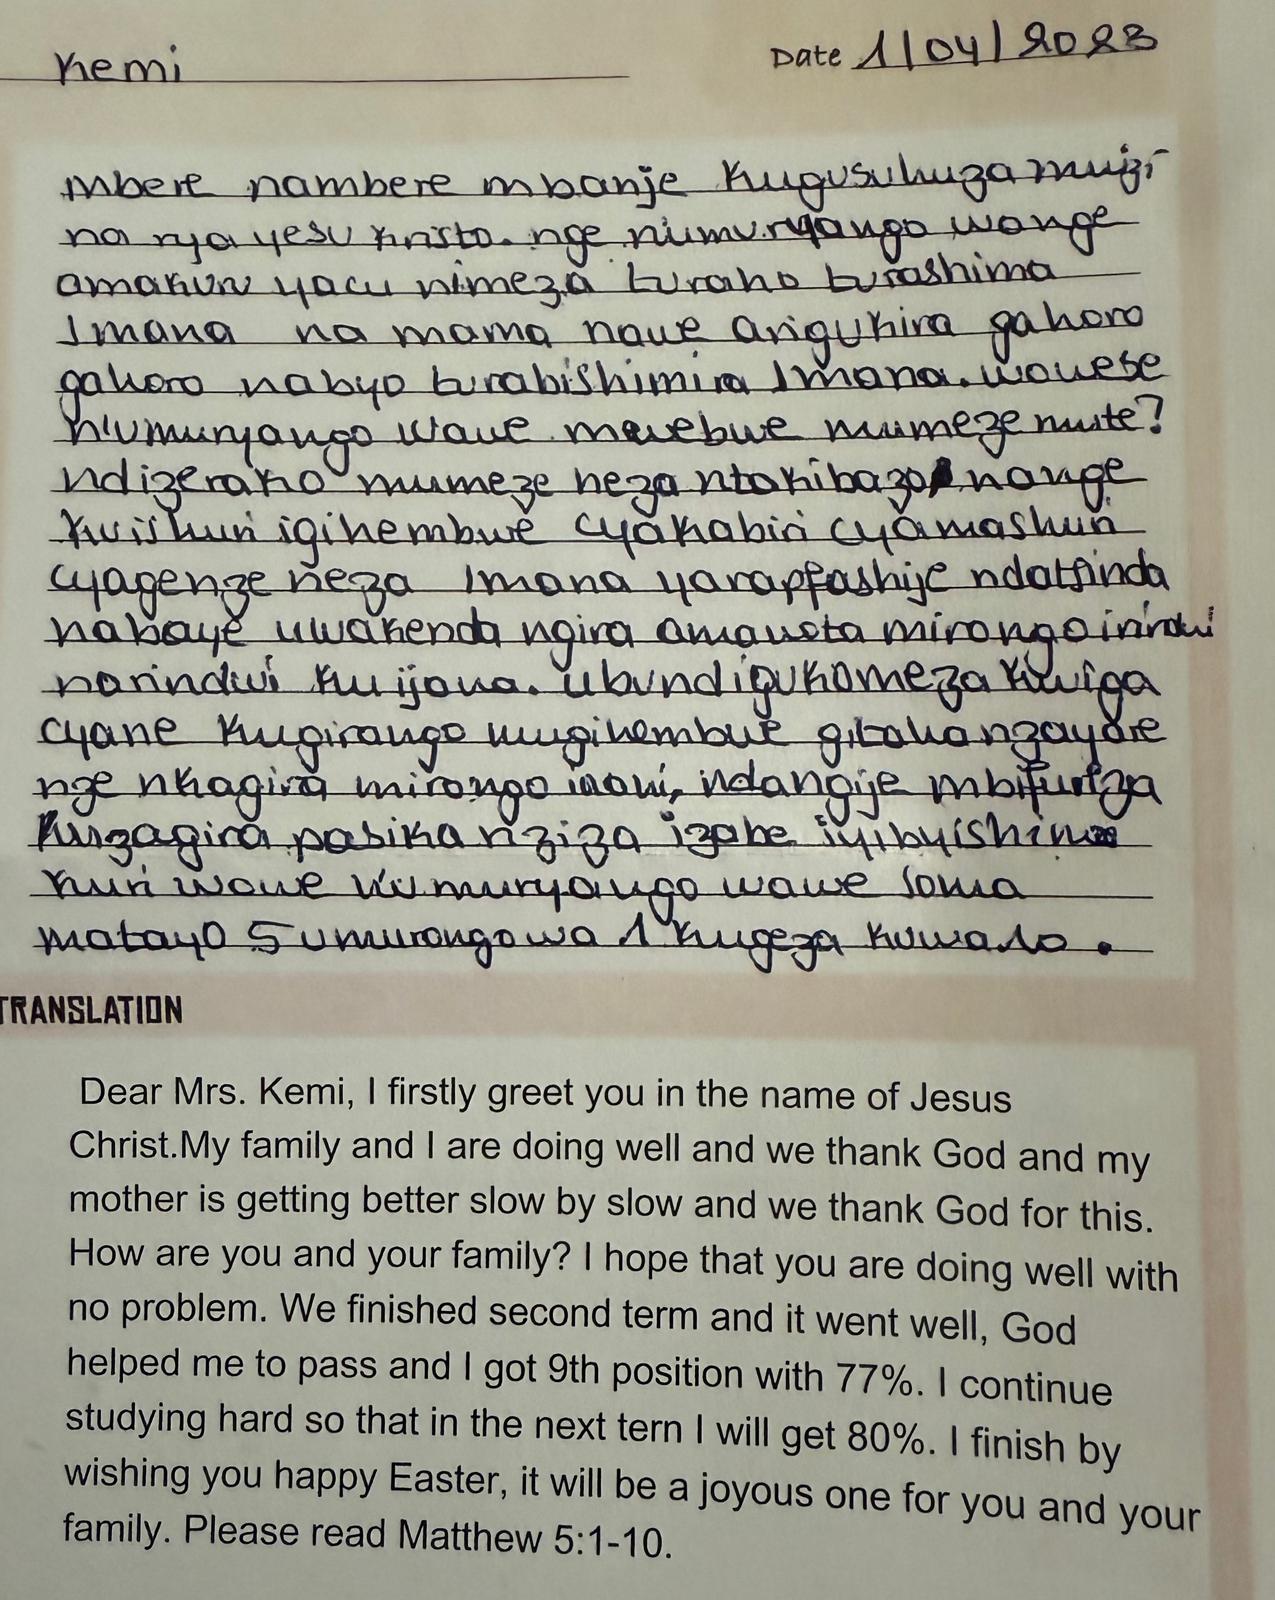 Kemi
Date 1/04/2023
mbere nambere mbanje kugusuhuza muizi
na rya yesu kristo. nge numuryango wange
amakuru yacu nimeza turaho turashima
Imana na mama nawe arigukira gahoro
gahoro nabyo turabishimira Imana. wowese
n'umuryango wawe mwebwe mumeze mute?
ndizerako mumeze neza ntakibazo nange
kuishuri igihembwe cyakabiri cyamashuri
cyagenze neza Imana yarapfashije ndatsinda
nabaye uwakenda ngira amanota mirongoirindwi
narindwi kuijana. ubundigukomeza kwiga
cyane kugirango mugihembwe gitahanzayore
nge nkagira mirongo inani, ndangije mbifuriza
kuzagira pasika nziza izabe iyibyishimo
kuri wowe n'umuryango wawe soma
matayo 5 umurongowa 1 kugeza kuwa 10.
TRANSLATION
Dear Mrs. Kemi, I firstly greet you in the name of Jesus
Christ.My family and I are doing well and we thank God and my
mother is getting better slow by slow and we thank God for this.
How are you and your family? I hope that you are doing well with
no problem. We finished second term and it went well, God
helped me to pass and I got 9th position with 77%. I continue
studying hard so that in the next tern I will get 80%. I finish by
wishing you happy Easter, it will be a joyous one for you and your
family. Please read Matthew 5:1-10.